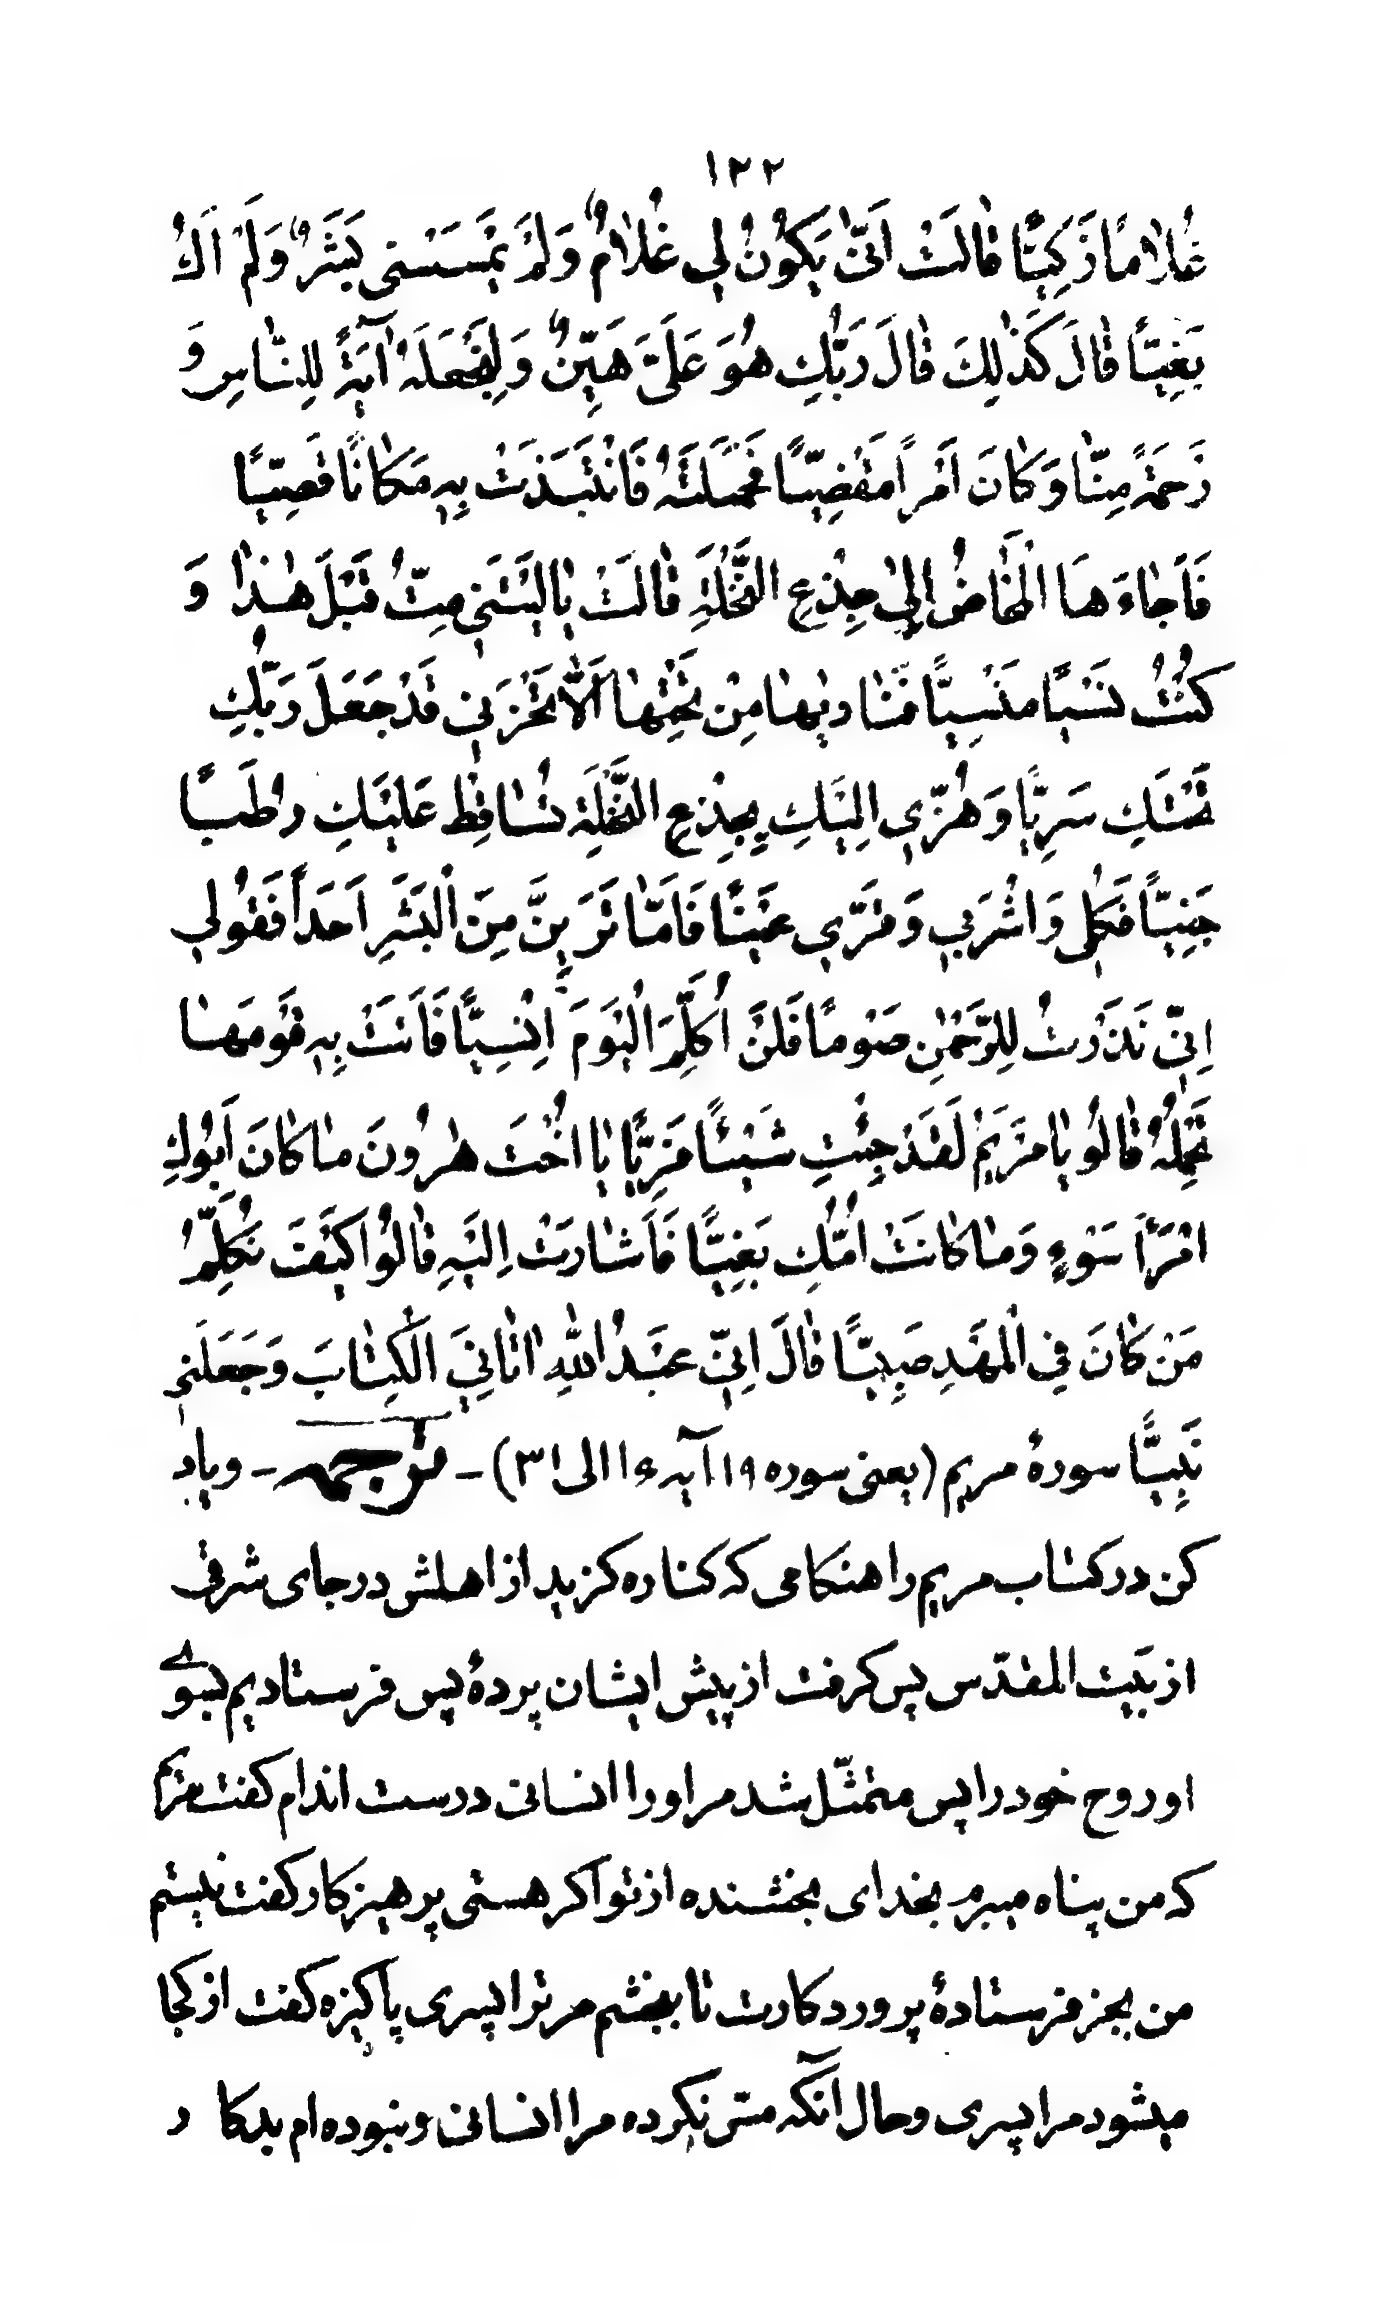 ۱۲۲
غُلاماً زَكِيّاً قالَتْ اَنّىٰ يَكُونُ لِي غُلامٌ وَلَمْ يَمْسَسْنى بَشَرٌ وَلَمْ اَكُ
بَغِيّاً قالَ كَذٰلِكَ قالَ رَبُّكِ هُوَ عَلَىَّ هَيِّنٌ وَلِنَجْعَلَهُ آيَةً لِلنّاسِ وَ
رَحْمَةً مِنّا وَكانَ اَمْراً مَقْضِيّاً فَحَمَلَتْهُ فَانْتَبَذَتْ بِهِ مَكاناً قَصِيّاً
فَاَجاءَهَا الْمَخاضُ اِلىٰ جِذْعِ النَّخْلَةِ قالَتْ يا لَيْتَنى مِتُّ قَبْلَ هٰذا وَ
كُنْتُ نَسْياً مَنْسِيّاً فَناديٰها مِنْ تَحْتِها اَلّا تَحْزَنى قَدْ جَعَلَ رَبُّكِ
تَحْتَكِ سَرِيّاً وَهُزّى اِلَيْكِ بِجِذْعِ النَّخْلَةِ تُساقِطْ عَلَيْكِ رُطَباً
جَنِيّاً فَكُلى وَاشْرَبي وَقَرّي عَيْناً فَاَمّا تَرَيِنَّ مِنَ الْبَشَرِ اَحَداً فَقُولي
اِنّى نَذَرْتُ لِلرَّحْمٰنِ صَوْماً فَلَنْ اُكَلِّمَ الْيَوْمَ اِنْسِيّاً فَاَتَتْ بِهِ قَوْمَها
تَحْمِلُهُ قالُو يا مَرْيَمُ لَقَدْ جِئْتِ شَيْئاً فَرِيّاً يا اُخْتَ هٰرُونَ ما كانَ اَبُوكِ
امْرَأَ سَوْءٍ وَما كانَتْ اُمُّكِ بَغِيّاً فَاَشارَتْ اِلَيْهِ قالُوا كَيْفَ نُكَلِّمُ
مَنْ كانَ فِي الْمَهْدِ صَبِيّاً قالَ اِنّى عَبْدُ اللّٰهِ اٰتانِيَ الْكِتابَ وَجَعَلَنى
نَبِيّاً سورهٔ مريم (يعنى سوره ۱۹ آيه ۱۶ الى ۳۱) – ترجمه – وياد
كن در كتاب مريم را هنكامى كه كناره كزيد از اهلش در جاى شرقى
از بَيت المقدّس پس كرفت از پيش ايشان پردهٔ پس فرستاديم بسوے
او روح خود را پس متمثّل شد مر او را انسانى درست اندام كفت مريم
كه من پناه ميبرم بخداى بخشنده از تو اكر هستى پرهيزكار كفت نيستم
من بجز فرستادهٔ پروردكارت تا ببخشم مر ترا پسرى پاكيزه كفت از كجا
ميشود مرا پسرى وحال آنكه مسّ نكرده مرا انسانى ونبوده ام بدكار